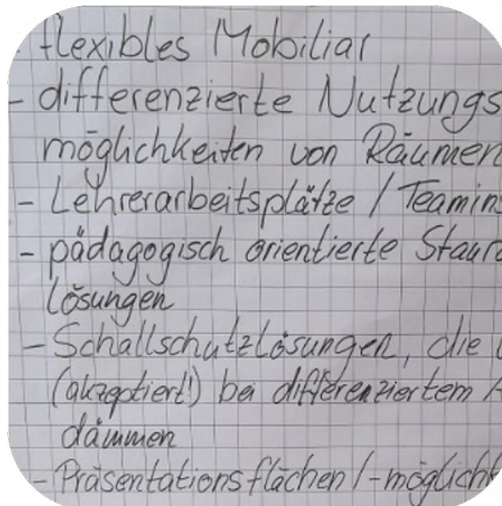 - flexibles Mobiliar
- differenzierte Nutzungs
möglichkeiten von Räumen
- Lehrerarbeitsplätze / Teamins
- pädagogisch orientierte Staur
lösungen
- Schallschutzlösungen, die
(akzeptiert!) bei differenziertem
dämmen
- Präsentationsflächen / -möglichk